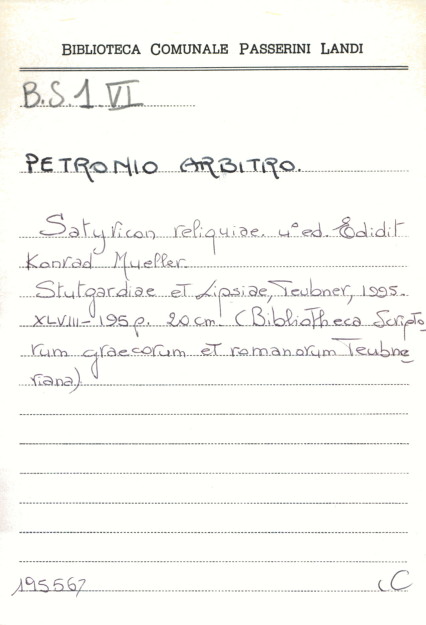 BIBLIOTECA COMUNALE PASSERINI LANDI
B.S.1 VI
PETRONIO ARBITRO.
Satyricon reliquiae. 4ª ed. Edidit
Konrad Mueller.
Stutgardiae et Lipsiae, Teubner, 1995.
XLVIII-195 p. 20 cm. (Bibliotheca Scripto
rum graecorum et romanorum Teubne
riana)
195567 C